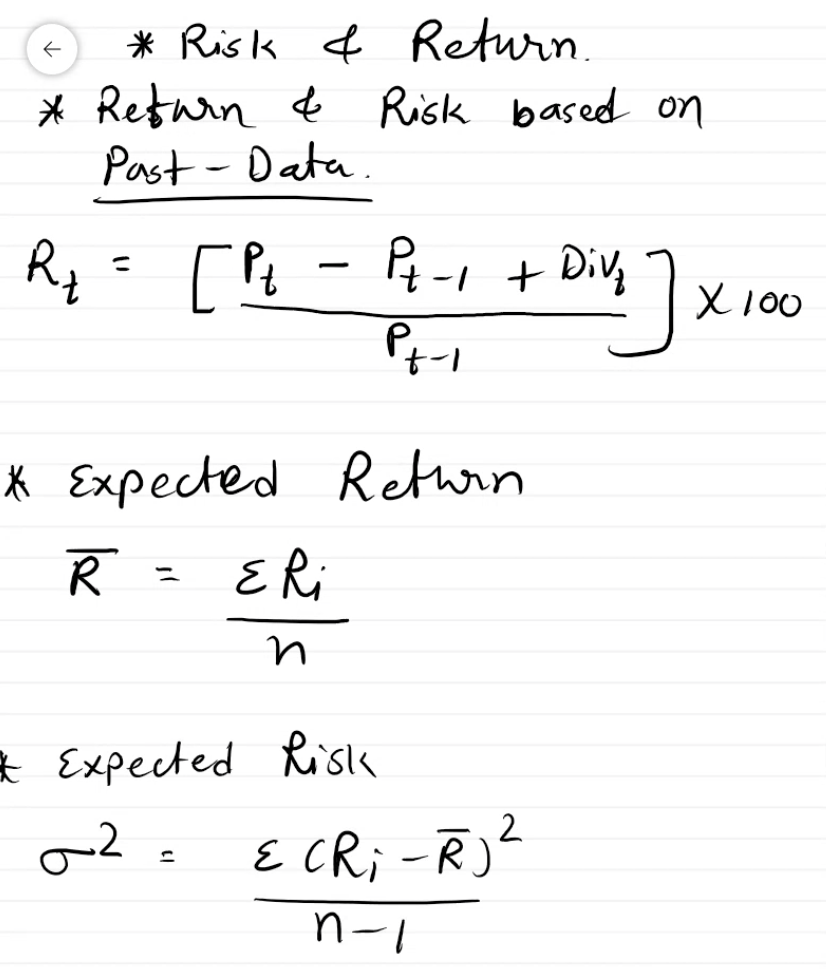 * Risk & Return.
* Return & Risk based on
Past - Data.
R_t = [ (P_t - P_{t-1} + Div_t) / P_{t-1} ] × 100
* Expected Return
R̄ = ΣR_i / n
* Expected Risk
σ² = Σ(R_i - R̄)² / n-1